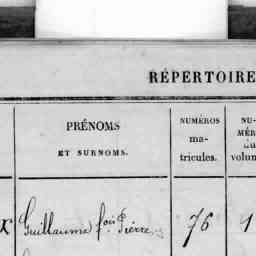 RÉPERTOIRE
PRÉNOMS
ET SURNOMS.
NUMÉROS
ma-
tricules.
NU-
MÉR
du
volum
Guillaume fois Pierre 76 1